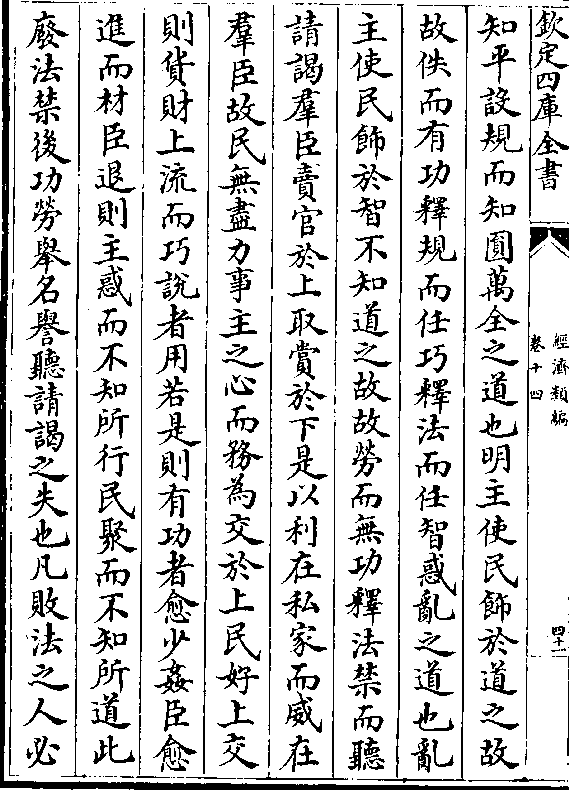 欽定四庫全書
經濟類編
卷十四
四十一
知平設規而知圓萬全之道也明主使民飾於道之故
故佚而有功釋規而任巧釋法而任智惑亂之道也亂
主使民飾於智不知道之故故勞而無功釋法禁而聽
請謁羣臣賣官於上取賞於下是以利在私家而威在
羣臣故民無盡力事主之心而務為交於上民好上交
則貨財上流而巧說者用若是則有功者愈少姦臣愈
進而材臣退則主惑而不知所行民聚而不知所道此
廢法禁後功勞舉名譽聽請謁之失也凡敗法之人必